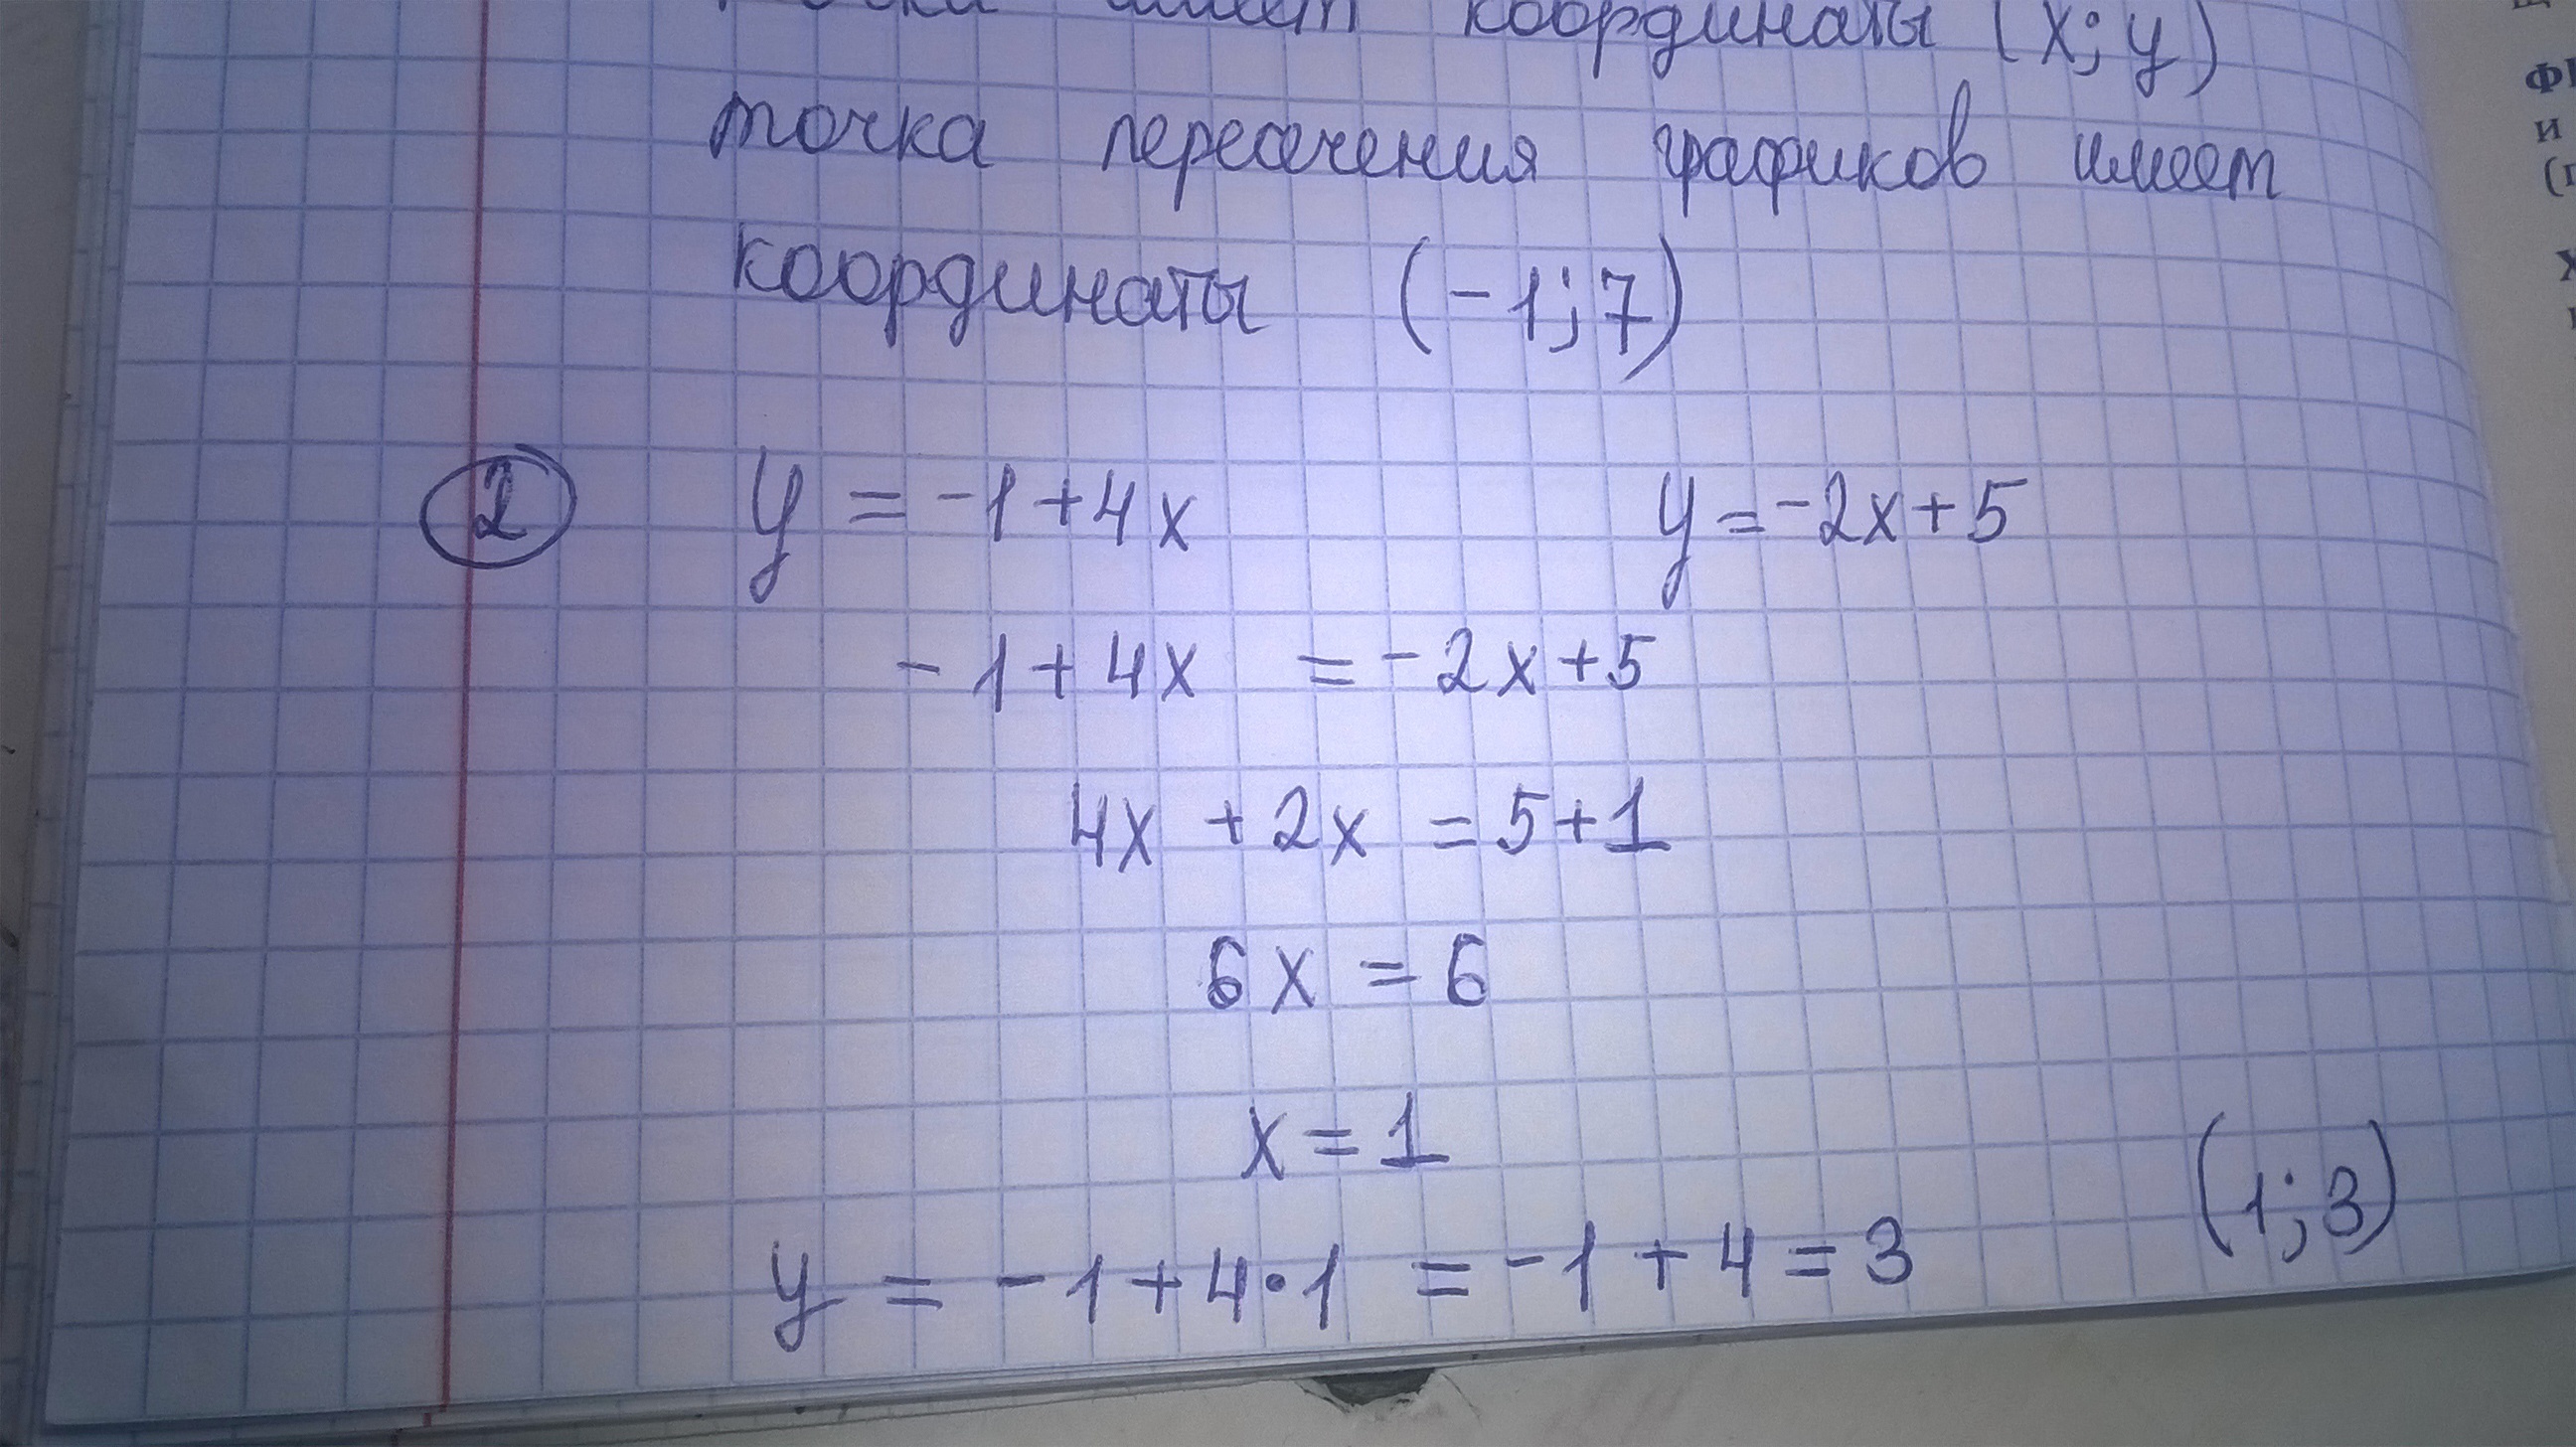 имеет координаты (x; y)
точка пересечения графиков имеет
координаты (-1; 7)
2 y = -1+4x y = -2x+5
-1+4x = -2x+5
4x +2x = 5+1
6x = 6
x = 1
(1; 3)
y = -1+4·1 = -1 + 4 = 3